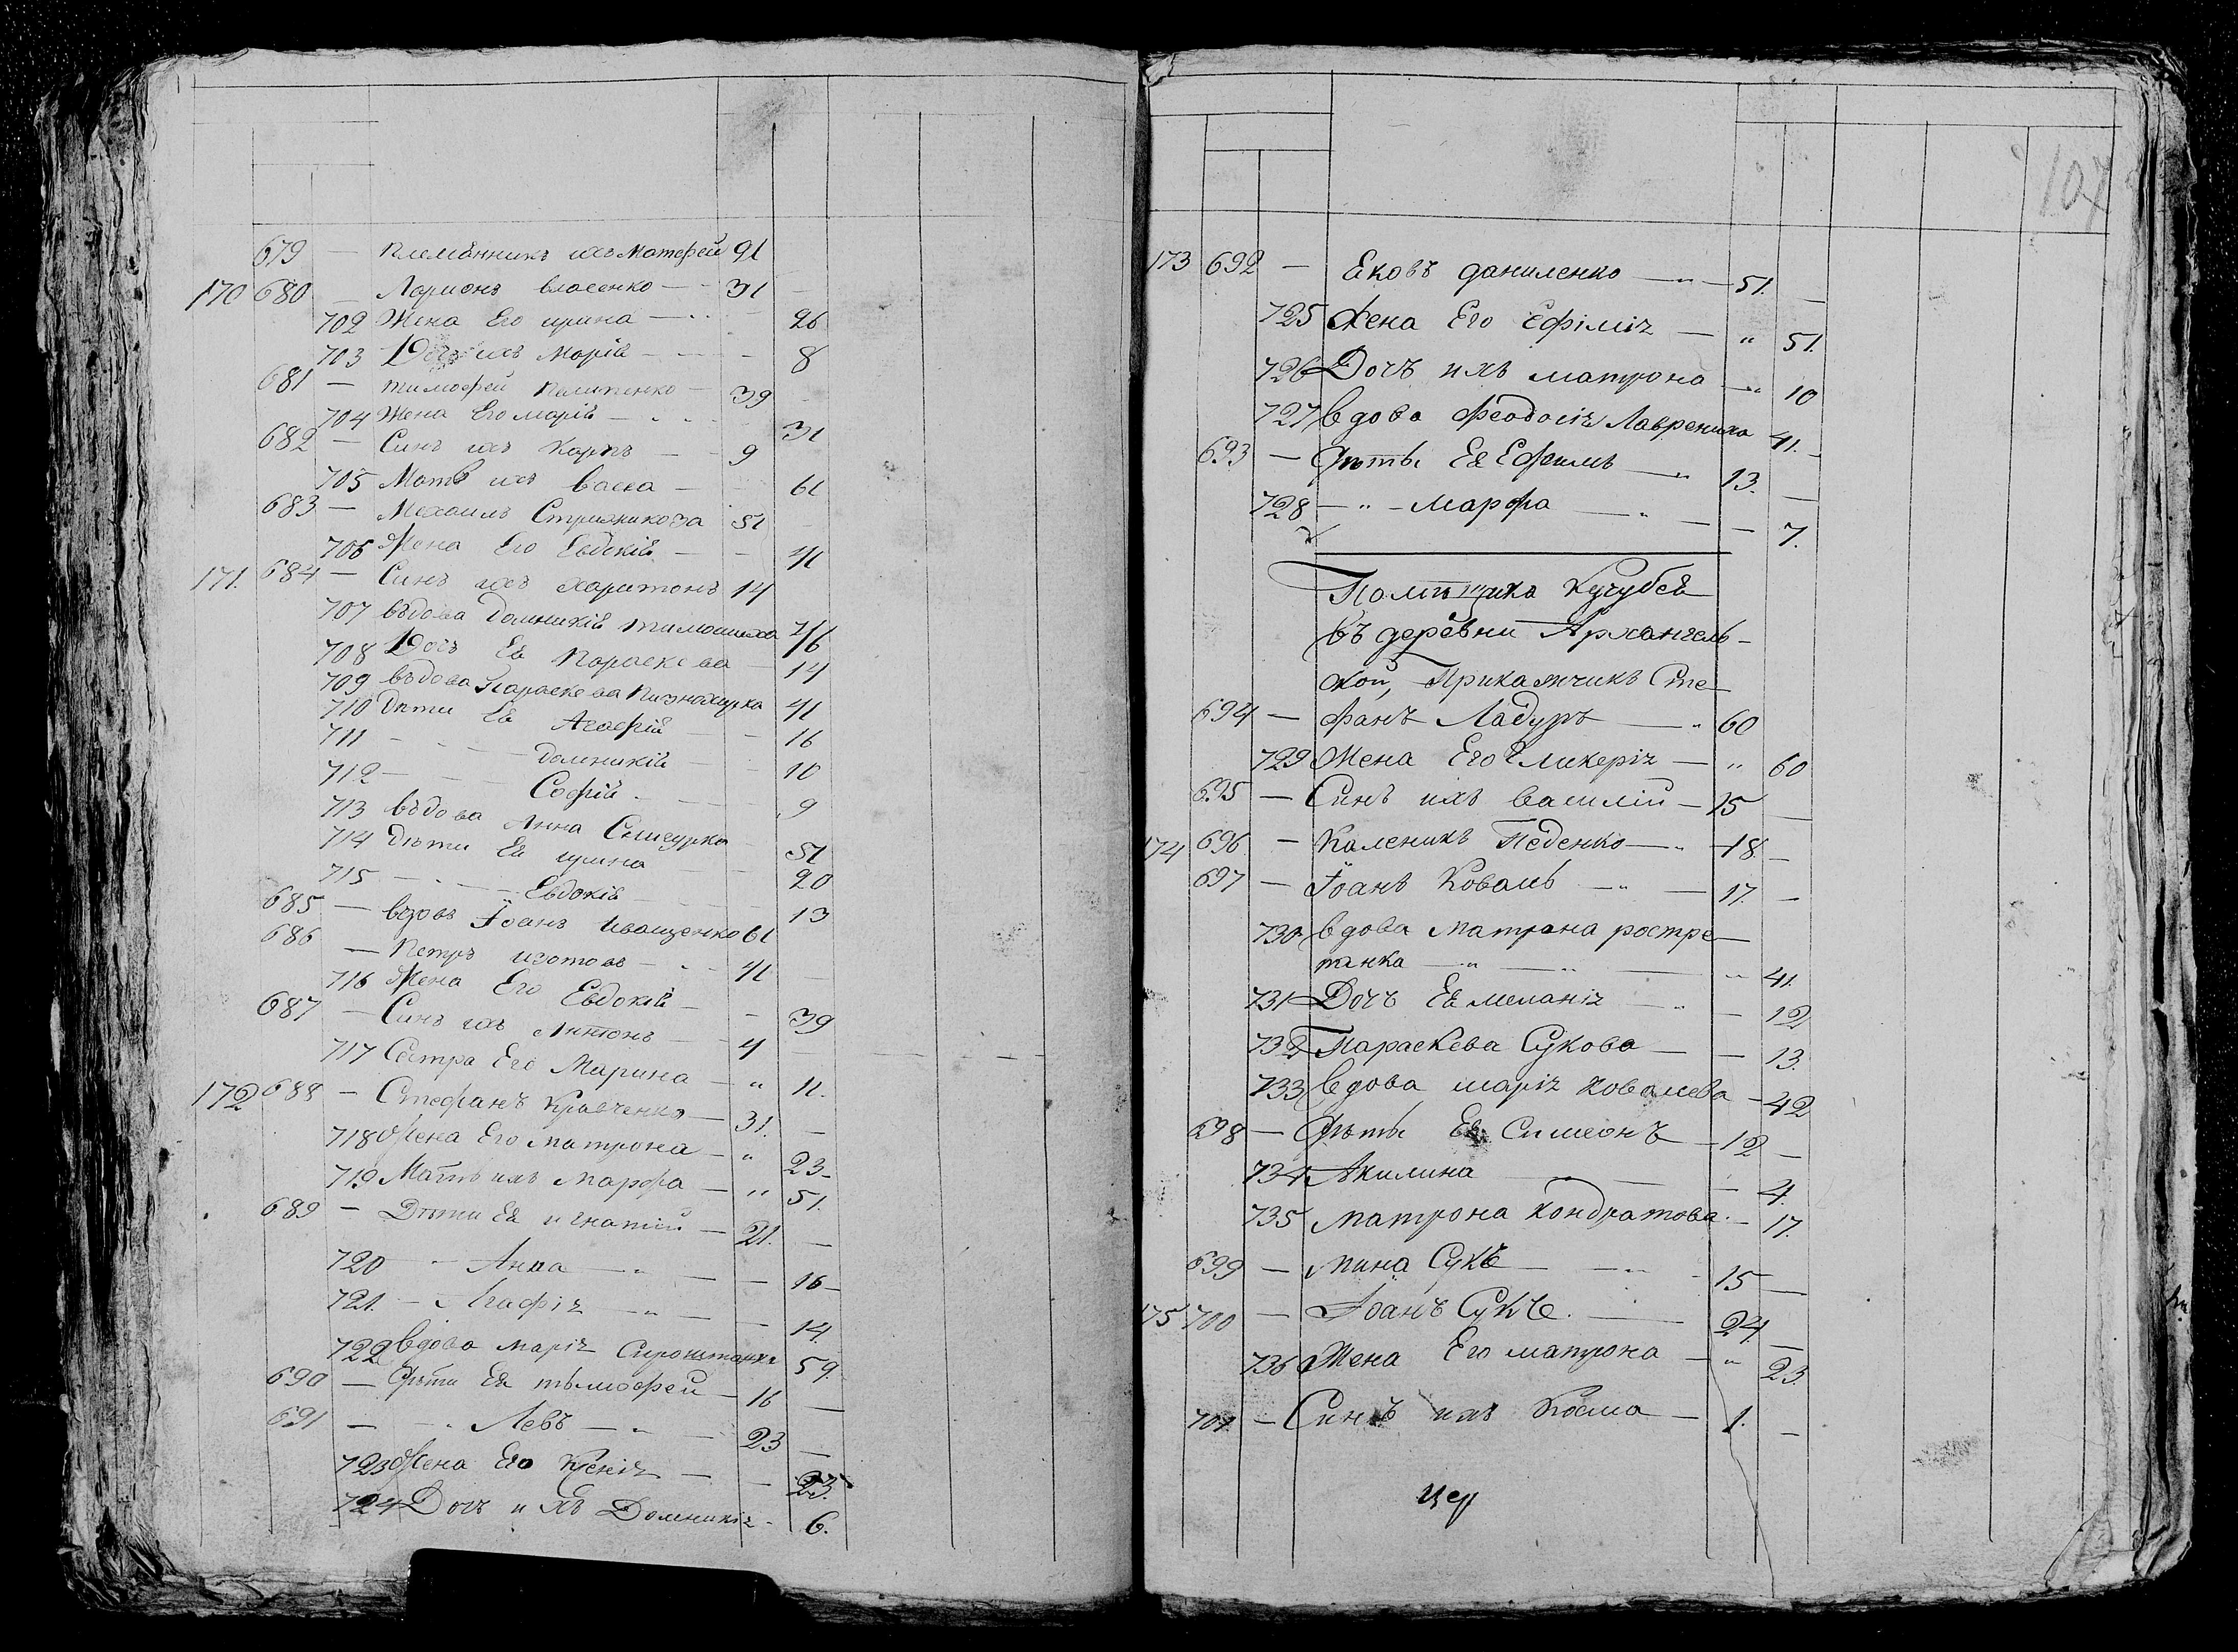 679 — племѣнникъ ихъ Матфей 91
170 680 — Ларионъ власенко — 31 —
702 Жена Его ирина — 26
703 Дочь ихъ Марія — 8
681 — тимофей пилипенко — 39 —
704 Жена Его марія — 31
682 — Синъ ихъ Карпъ — 9
705 Мать ихъ васса — 61
683 — Михаилъ 51 —
706 Жена Его Евдокія — 41
171. 684 — Синъ ихъ харитонъ 14
707 въдова Домникія тимошиха 46
708 Дочь Ея Параскева — 14
709 въдова Параскева 41
710 дѣти Ея Агафія — 16
711 — Домникія — 10
712 — Софія — 9
713 въдова Анна 51
714 дѣти Ея ирина — 20
715 — Евдокія — 13
685 — вдовъ Іоанъ иващенко 61
686 — Петръ изотовъ — 41 —
716 Жена Его Евдокія — 39
687 — Синъ ихъ Антонъ — 4 —
717 Сестра Его Марина — „ 11.
172 688 — Стефанъ Кравченко — 31. —
718 Жена Его матрона — „ 23 —
719 Мать ихъ Марфа — „ 51.
689 — Дѣти Ея игнатій — 21. —
720 — Анна — „ — 16 —
721. — Агафія — „ — 14.
722 вдова марія Сироштанка 59.
690 — Дѣти Ея тымофей — 16 —
691 — „ Левъ — „ — 23 —
723 Жена Его Ксенія — 23.
724 Дочъ ихъ Домникія — 6.
107
173 692 — Яковъ даниленко — „ — 51. —
725 Жена Его Ефімія — „ 51.
726 Дочъ ихъ матрона — „ 10
727 вдова Феодосія Лаврениха 41. —
693 — Дѣты Ея Ефимъ — „ 13. —
728 — „ — Марфа — „ — 7.
Помѣщика Кучубея
въ деревни Архангель-
ской, Прикажчикъ Сте-
694 — фанъ Ладуръ — „ 60
729 Жена Его Гликерія — „ 60
695 — Синъ ихъ василій — 15 —
174 696 — Каленикъ Педенко — „ 18. —
697 — Іоанъ Коваль — „ — 17. —
730 вдова Матрона ростре-
панка — „ — „ — „ 41.
731 Дочъ Ея меланія — „ — 12
732 Параскева Сукова — — 13.
733 вдова марія ковалева — 42
698 — Дѣты Ея Симеонъ — 12 —
734 Акилина — — 4.
735 матрона кондратова — 17.
699 — мина Сукъ — „ 15 —
175 700 — Іоанъ Сукъ. — 24. —
736 Жена Его матрона — „ 23.
701 — Синъ ихъ Косма — 1. —